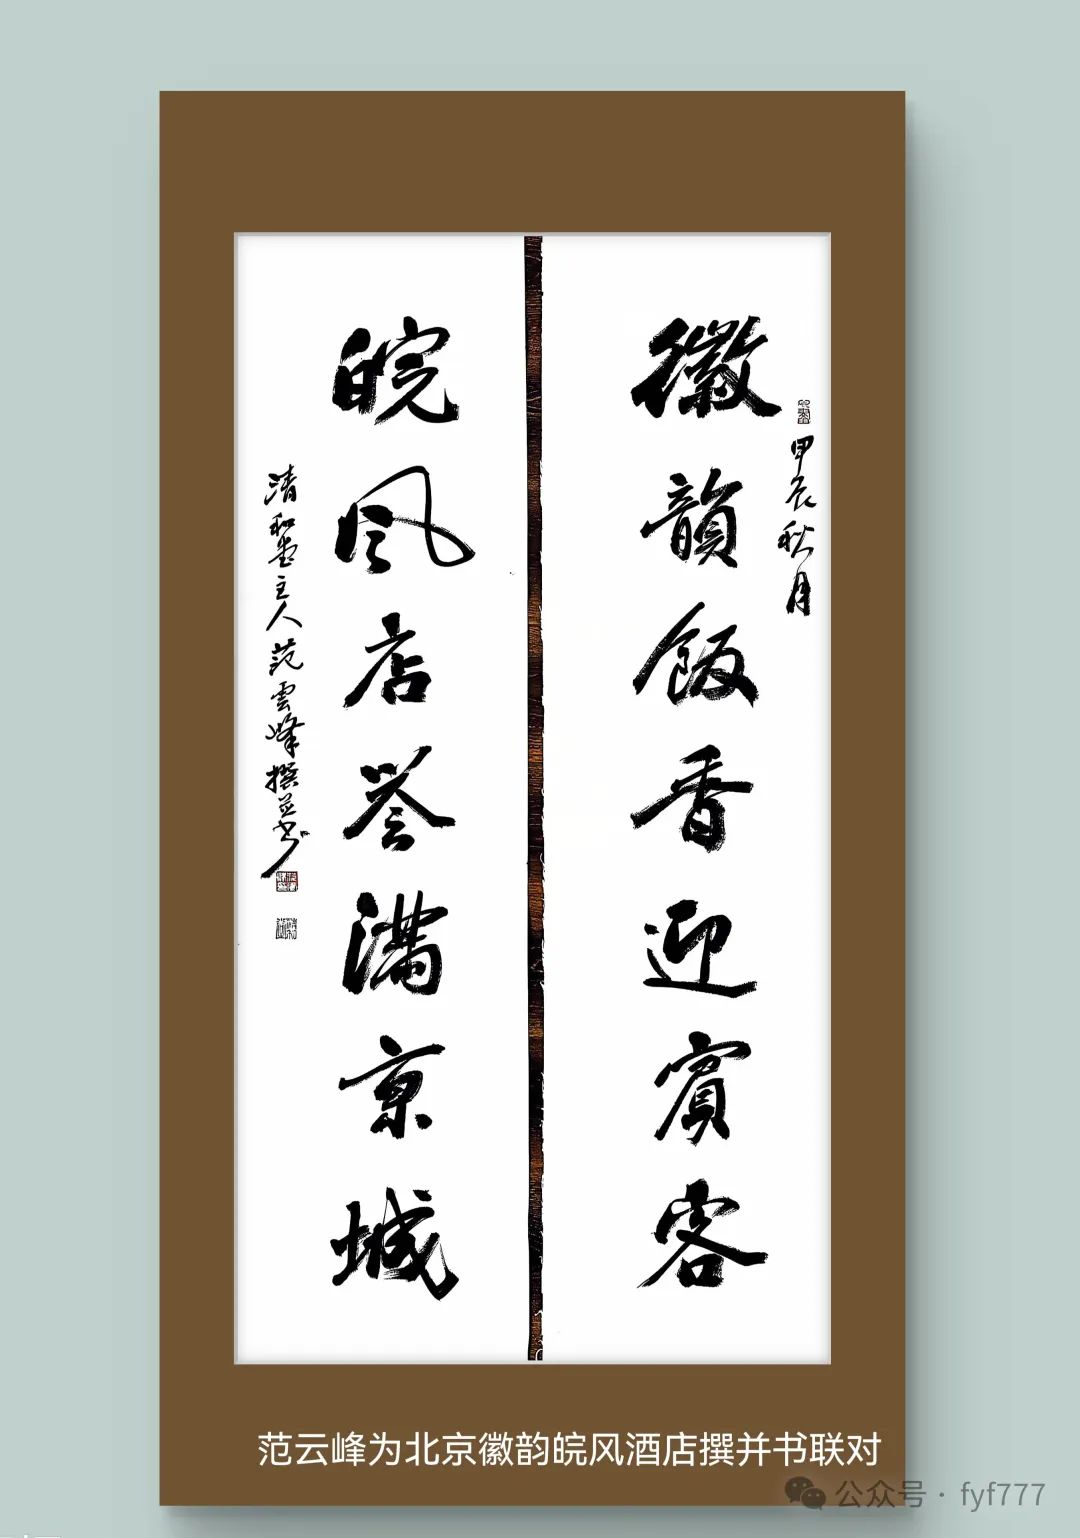 甲辰秋月
徽韻飯香迎賓客
皖风店誉满京城
清和堂主人范雲峰撰并书
范云峰为北京徽韵皖风酒店撰并书联对
公众号·fyf777